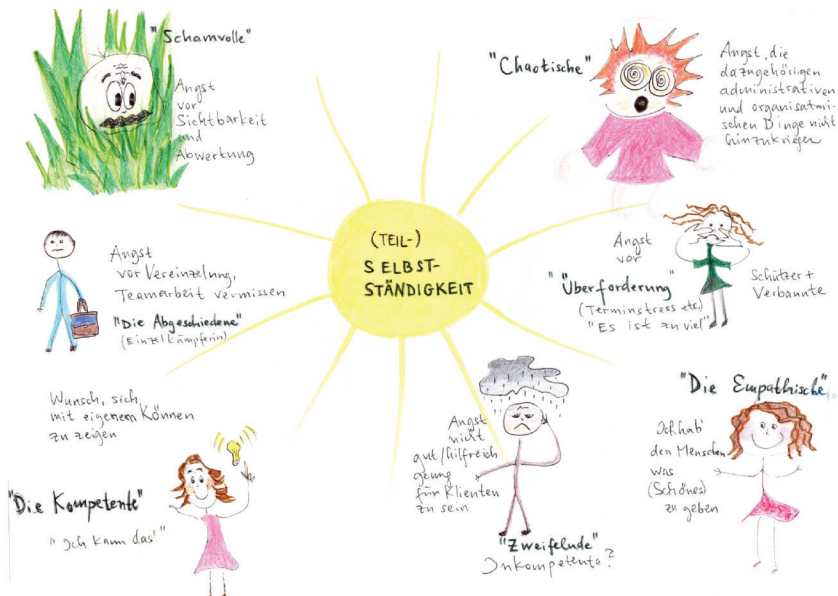 "Schamvolle"
Angst
vor
Sichtbarkeit
und
Abwertung
"Chaotische"
Angst, die
dazugehörigen
administrativen
und organisatori-
schen Dinge nicht
hinzukriegen
(TEIL-)
SELBST-
STÄNDIGKEIT
Angst
vor Vereinzelung,
Teamarbeit vermissen
"Die Abgeschiedene"
(Einzelkämpferin)
Angst
vor
"Überforderung"
(Terminstress etc.)
"Es ist zu viel"
Schützer +
Verbannte
Wunsch, sich
mit eigenem Können
zu zeigen
"Die Kompetente"
"Ich kann das"
Angst
nicht
gut/hilfreich
genug
für Klienten
zu sein
"Zweifelnde"
Inkompetente?
"Die Empathische"
Ich hab
den Menschen
was
(Schönes)
zu geben